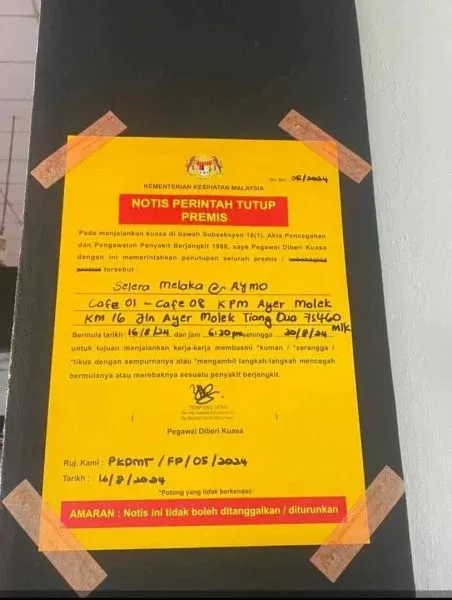 No. Siri: 05/2024
KEMENTERIAN KESIHATAN MALAYSIA
NOTIS PERINTAH TUTUP
PREMIS
Pada menjalankan kuasa di bawah Subseksyen 18(1), Akta Pencegahan
dan Pengawalan Penyakit Berjangkit 1988, saya Pegawai Diberi Kuasa
dengan ini memerintahkan penutupan seluruh premis / sebahagian
premis tersebut :
Selera Melaka @ Aymo
Cafe 01 - Cafe 08 KPM Ayer Molek
KM 16 Jln Ayer Molek Tiang Dua 75460 Mlk
Bermula tarikh 16/8/24 dan jam 6:30pm sehingga 30/8/24
untuk tujuan menjalankan kerja-kerja membasmi *kuman / *serangga /
*tikus dengan sempurnanya atau *mengambil langkah-langkah mencegah
bermulanya atau merebaknya sesuatu penyakit berjangkit.
Pegawai Diberi Kuasa
Ruj. Kami : PKDMT/FP/05/2024
Tarikh : 16/8/2024
*Potong yang tidak berkenaan
AMARAN : Notis ini tidak boleh ditanggalkan / diturunkan